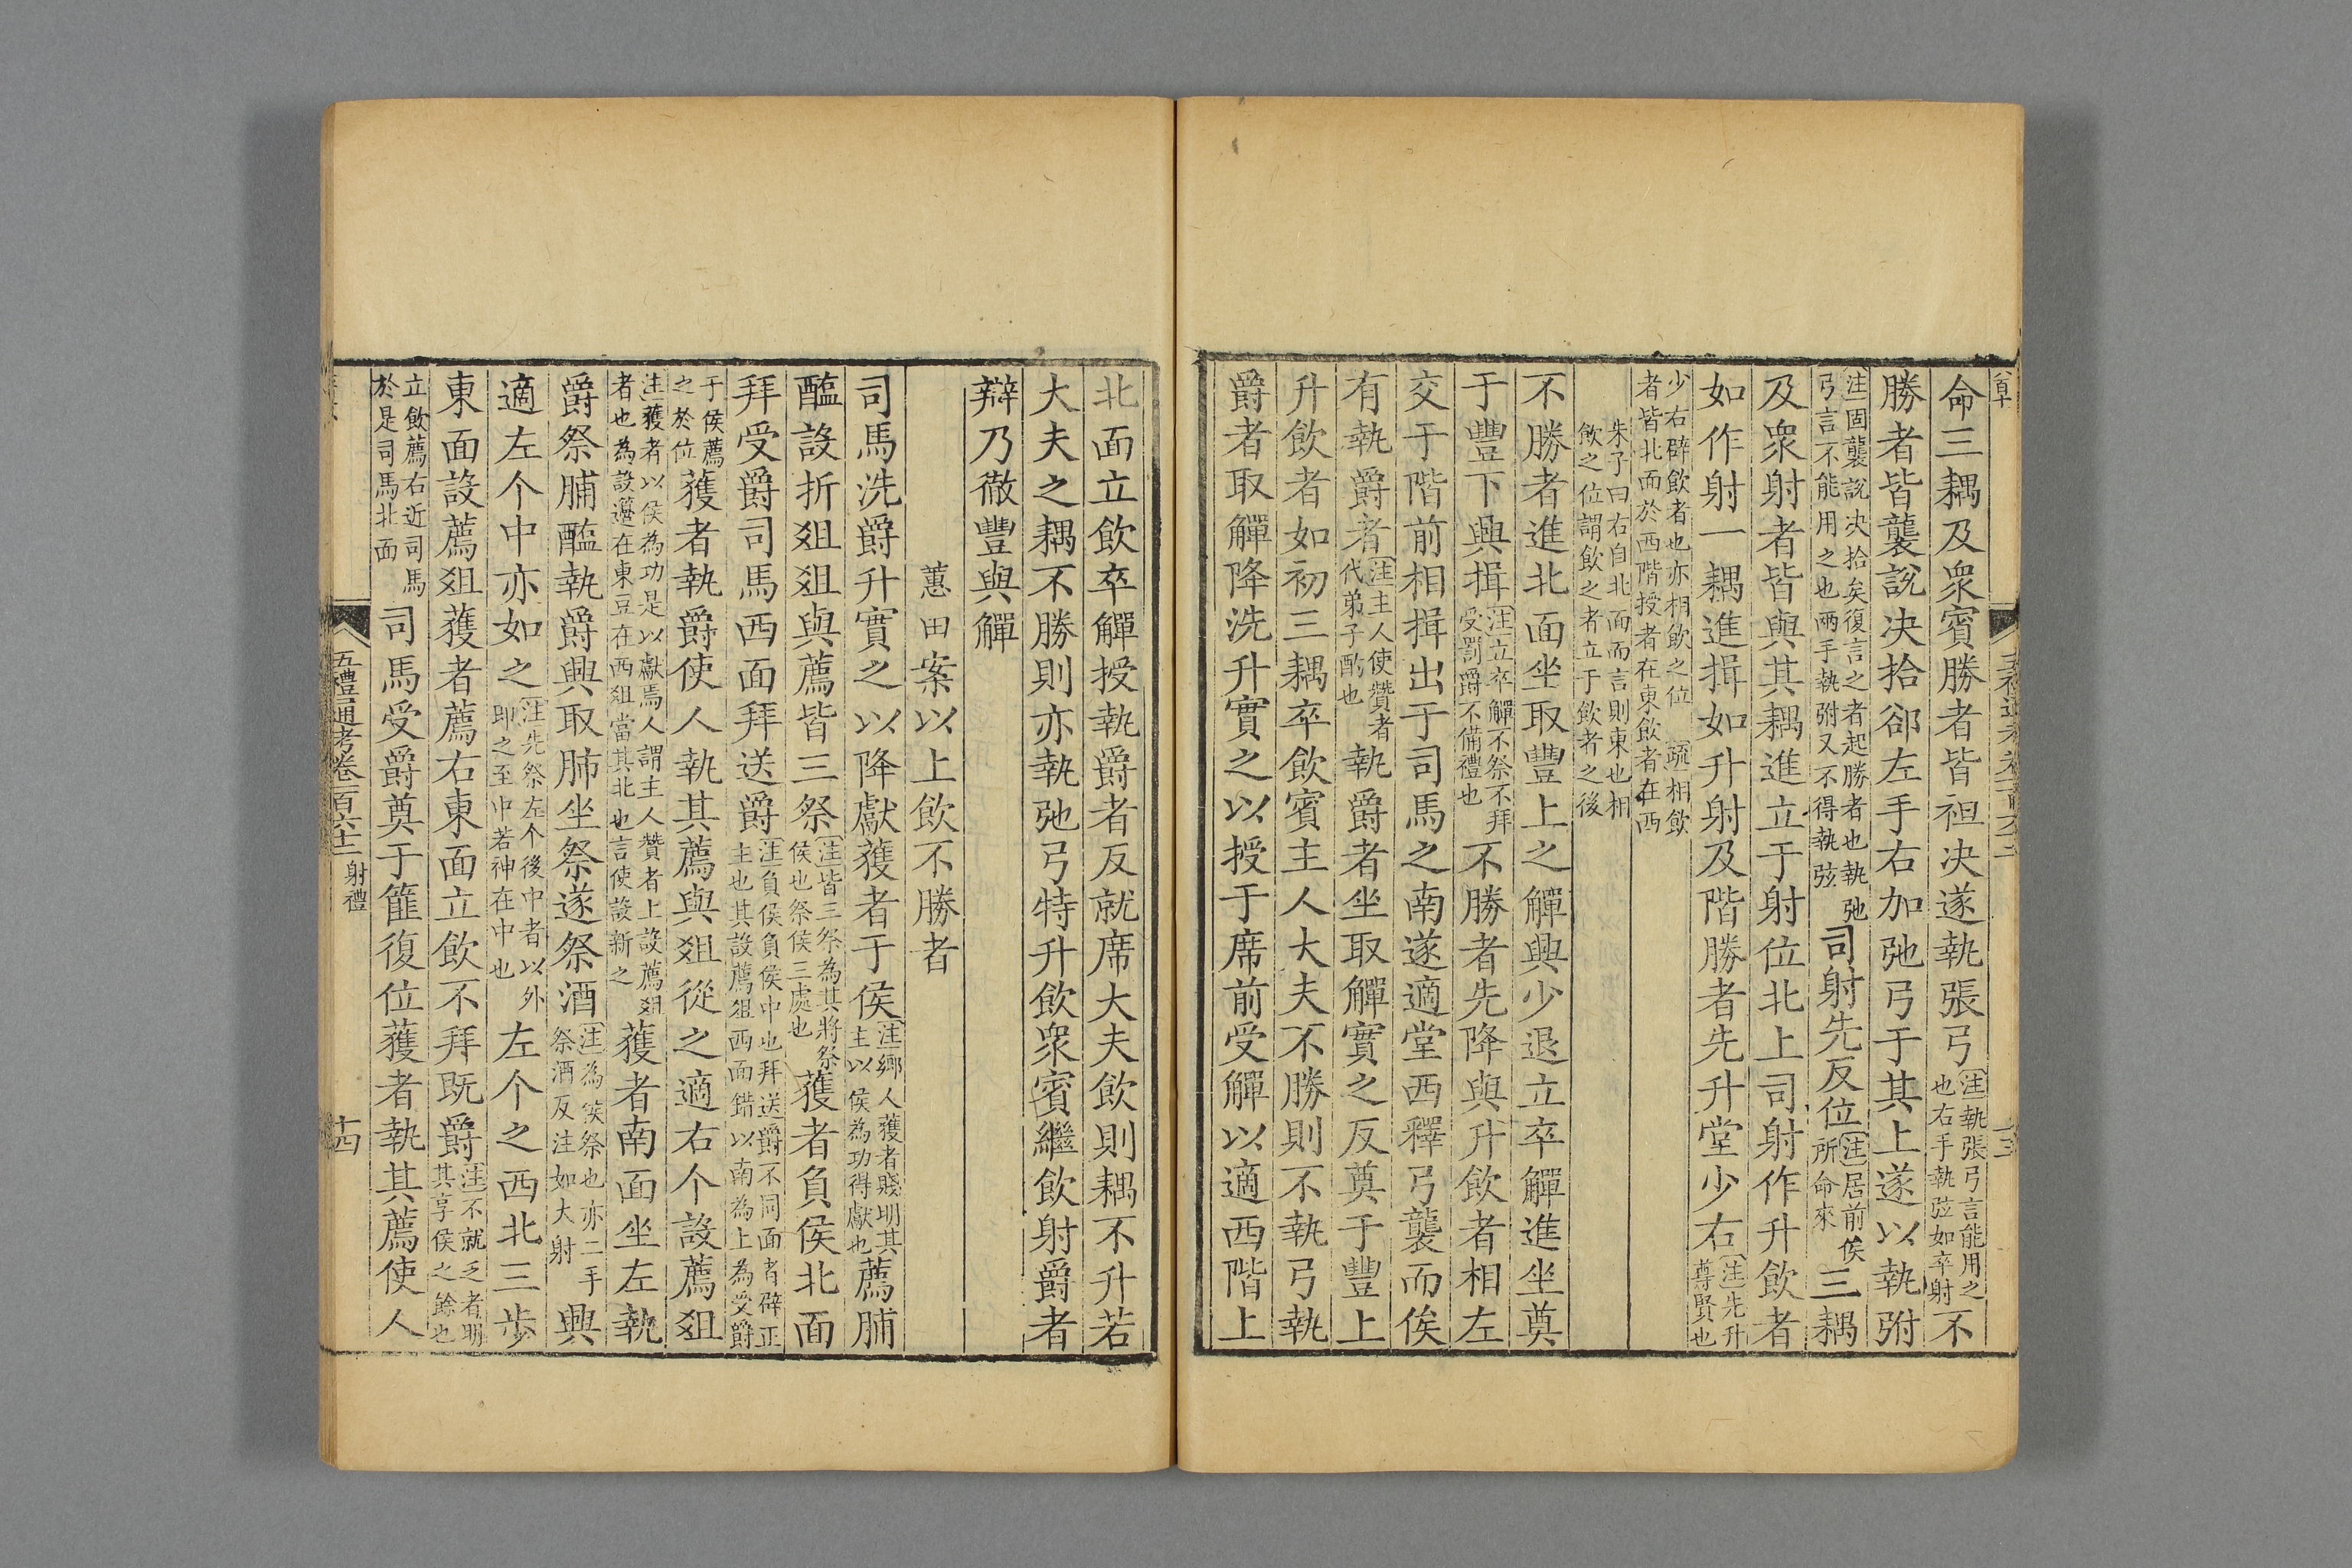 命三耦及衆賓勝者皆袒决遂執張弓注執張弓言能用之也右手執弦如卒射不
勝者皆襲說决拾郤左手右加弛弓于其上遂以執弣
注固襲說决拾矣復言之者起勝者也執弛弓言不能用之也兩手執弣又不得執弦司射先反位注居前俟所命來三耦
及衆射者皆與其耦進立于射位北上司射作升飲者
如作射一耦進揖如升射及階勝者先升堂少右注先升尊賢也
少右辟飲者也亦相飲之位疏相飲者皆北面於西階授者在東飲者在西
朱子曰右自北面而言則東也相飲之位謂飲之者立于飲者之後
不勝者進北面坐取豐上之觶興少退立卒觶進坐奠
于豐下興揖注立卒觶不祭不拜受罰爵不備禮也不勝者先降與升飲者相左
交于階前相揖出于司馬之南遂適堂西釋弓襲而俟
有執爵者注主人使贊者代弟子酌也執爵者坐取觶實之反奠于豐上
升飲者如初三耦卒飲賓主人大夫不勝則不執弓執
爵者取觶降洗升實之以授于席前受觶以適西階上
北面立飲卒觶授執爵者反就席大夫飲則耦不升若
大夫之耦不勝則亦執弛弓特升飲衆賓繼飲射爵者
辯乃徹豐與觶
蕙田案以上飲不勝者
司馬洗爵升實之以降獻獲者于侯注鄉人獲者賤明其主以侯為功得獻也薦脯
醢設折俎俎與薦皆三祭注皆三祭為其將祭侯也祭侯三處也獲者負侯北面
拜受爵司馬西面拜送爵注負侯負侯中也拜送爵不同面者辟正主也其設薦俎西面錯以南為上為受爵
于侯薦之於位獲者執爵使人執其薦與俎從之適右个設薦俎
注獲者以侯為功是以獻焉人謂主人贊者上設薦俎者也為設籩在東豆在西俎當其北也言使設新之獲者南面坐左執
爵祭脯醢執爵興取肺坐祭遂祭酒注為侯祭也亦二手祭酒反注如大射興
適左个中亦如之注先祭左个後中者以外即之至中若神在中也左个之西北三步
東面設薦俎獲者薦右東面立飲不拜既爵注不就乏者明其享侯之餘也
立飲薦右近司馬於是司馬北面司馬受爵奠于篚復位獲者執其薦使人
五禮通考卷一百六十二 射禮
十四